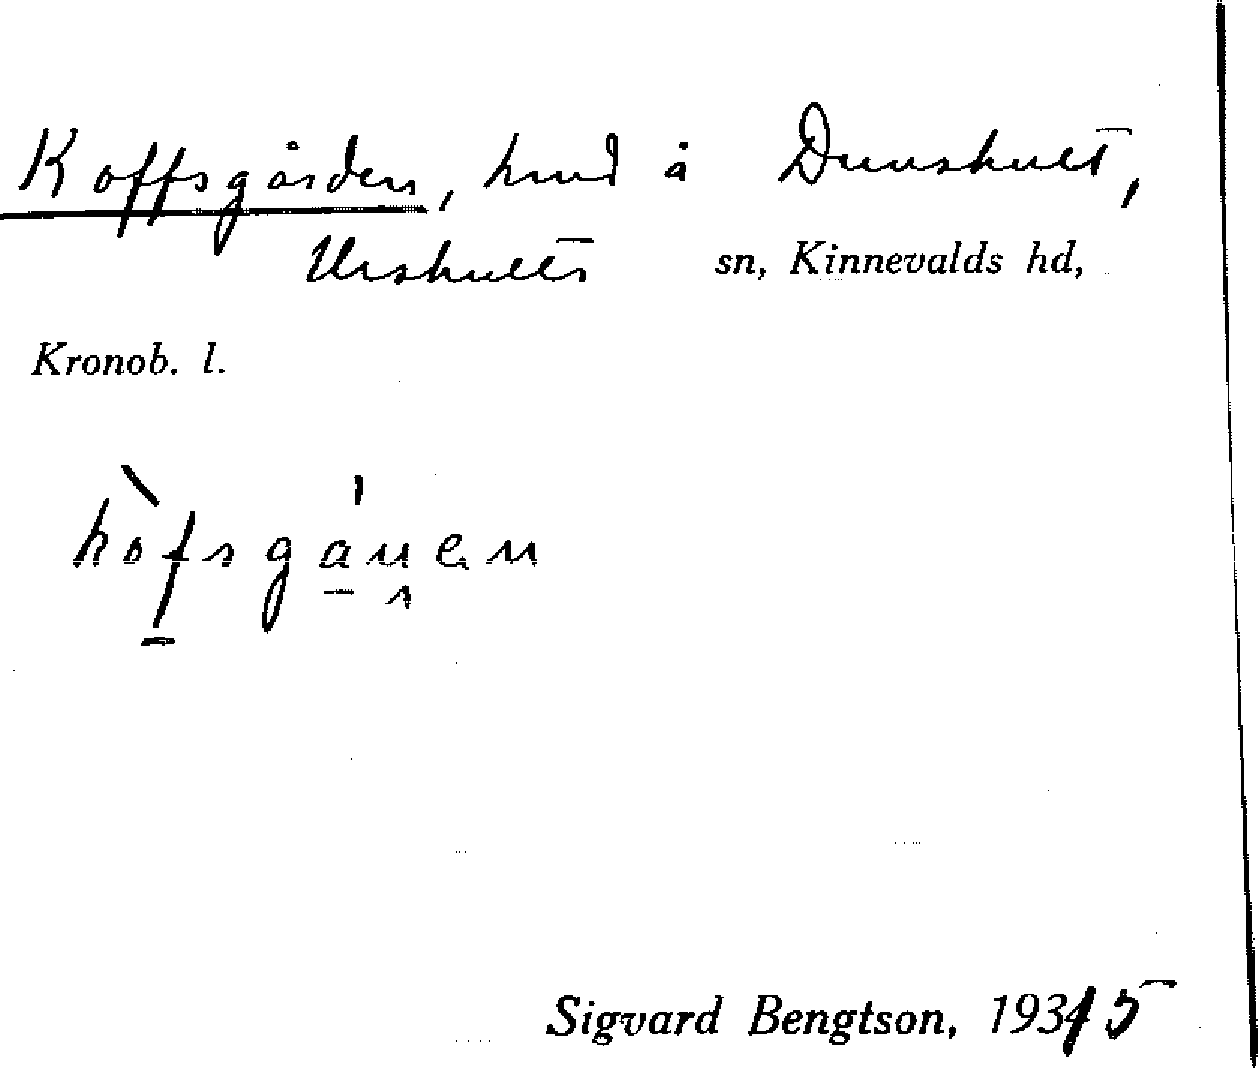 Koffsgården, hmd å Dunshult,
Urshults sn, Kinnevalds hd,
Kronob. l.
Sigvard Bengtson, 1935